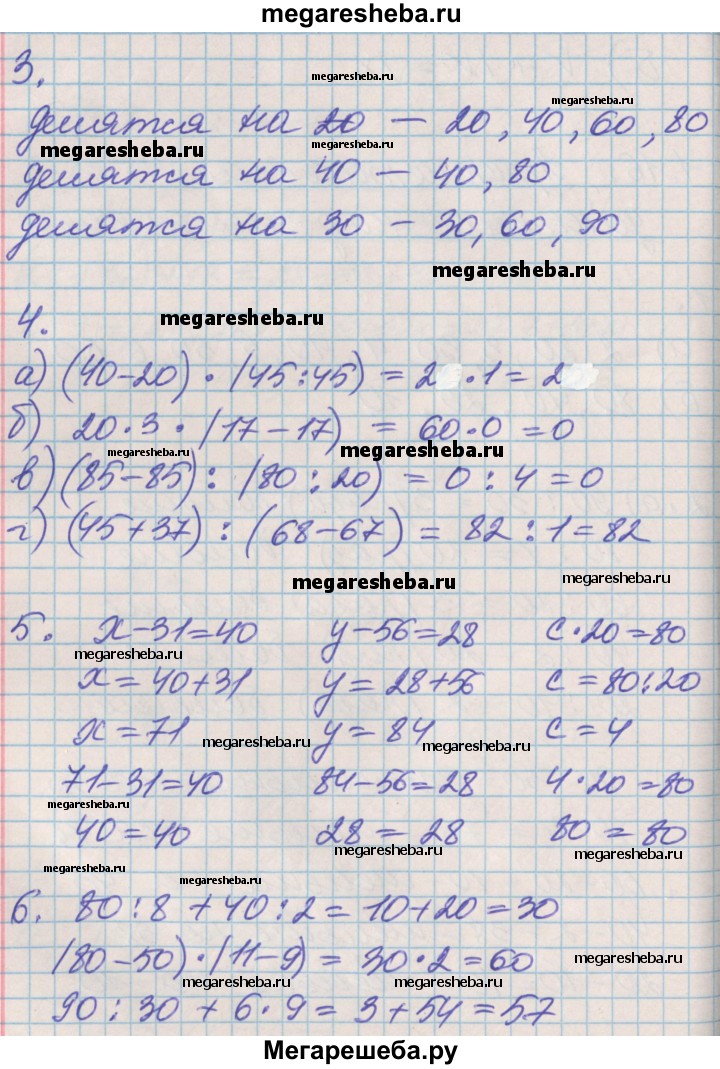 megaresheba.ru
3.
megaresheba.ru
megaresheba.ru
делятся на 20 – 20, 40, 60, 80
megaresheba.ru
megaresheba.ru
делятся на 40 – 40, 80
делятся на 30 – 30, 60, 90
megaresheba.ru
4.
megaresheba.ru
а) (40-20) · (45:45) = 2 · 1 = 2
б) 20·3 · (17-17) = 60·0 = 0
megaresheba.ru
megaresheba.ru
в) (85-85) : (80:20) = 0 : 4 = 0
г) (45+37) : (68-67) = 82 : 1 = 82
megaresheba.ru
megaresheba.ru
5. x-31=40 y-56=28 c·20=80
megaresheba.ru
megaresheba.ru
x=40+31 y=28+56 c=80:20
x=71 y=84 c=4
megaresheba.ru
megaresheba.ru
71-31=40 84-56=28 4·20=80
megaresheba.ru
40=40 28=28 80=80
megaresheba.ru
megaresheba.ru
megaresheba.ru
megaresheba.ru
6. 80:8+40:2=10+20=30
(80-50)·(11-9)=30·2=60
megaresheba.ru
megaresheba.ru
megaresheba.ru
90:30+6·9=3+54=57
Мегарешеба.ру